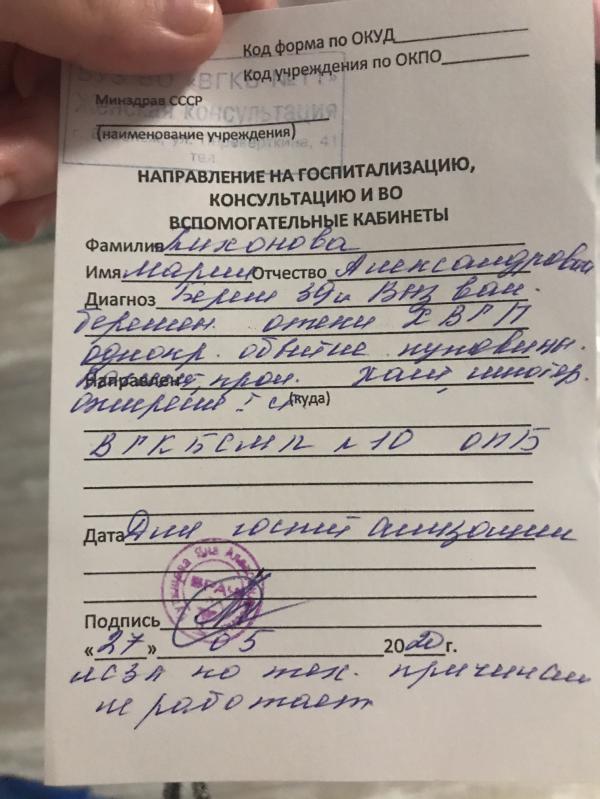 Код форма по ОКУД
Код учреждения по ОКПО
БУЗ ВО «ВГКБ №11»
Минздрав СССР
Женская консультация
(наименование учреждения)
41
тел.
НАПРАВЛЕНИЕ НА ГОСПИТАЛИЗАЦИЮ,
КОНСУЛЬТАЦИЮ И ВО
ВСПОМОГАТЕЛЬНЫЕ КАБИНЕТЫ
Фамилия Тихонова
Имя Мария Отчество Александровна
Диагноз Берем 39н
беремен. отеки ХВГП
однокр. обвитие пуповины.
Направлен
ожирение I ст
(куда)
ВГКБСМП №10 ОПБ
Дата Для госпитализации
ВРАЧ
Подпись
«27» 05 2020 г.
по тех. причинам
не работает